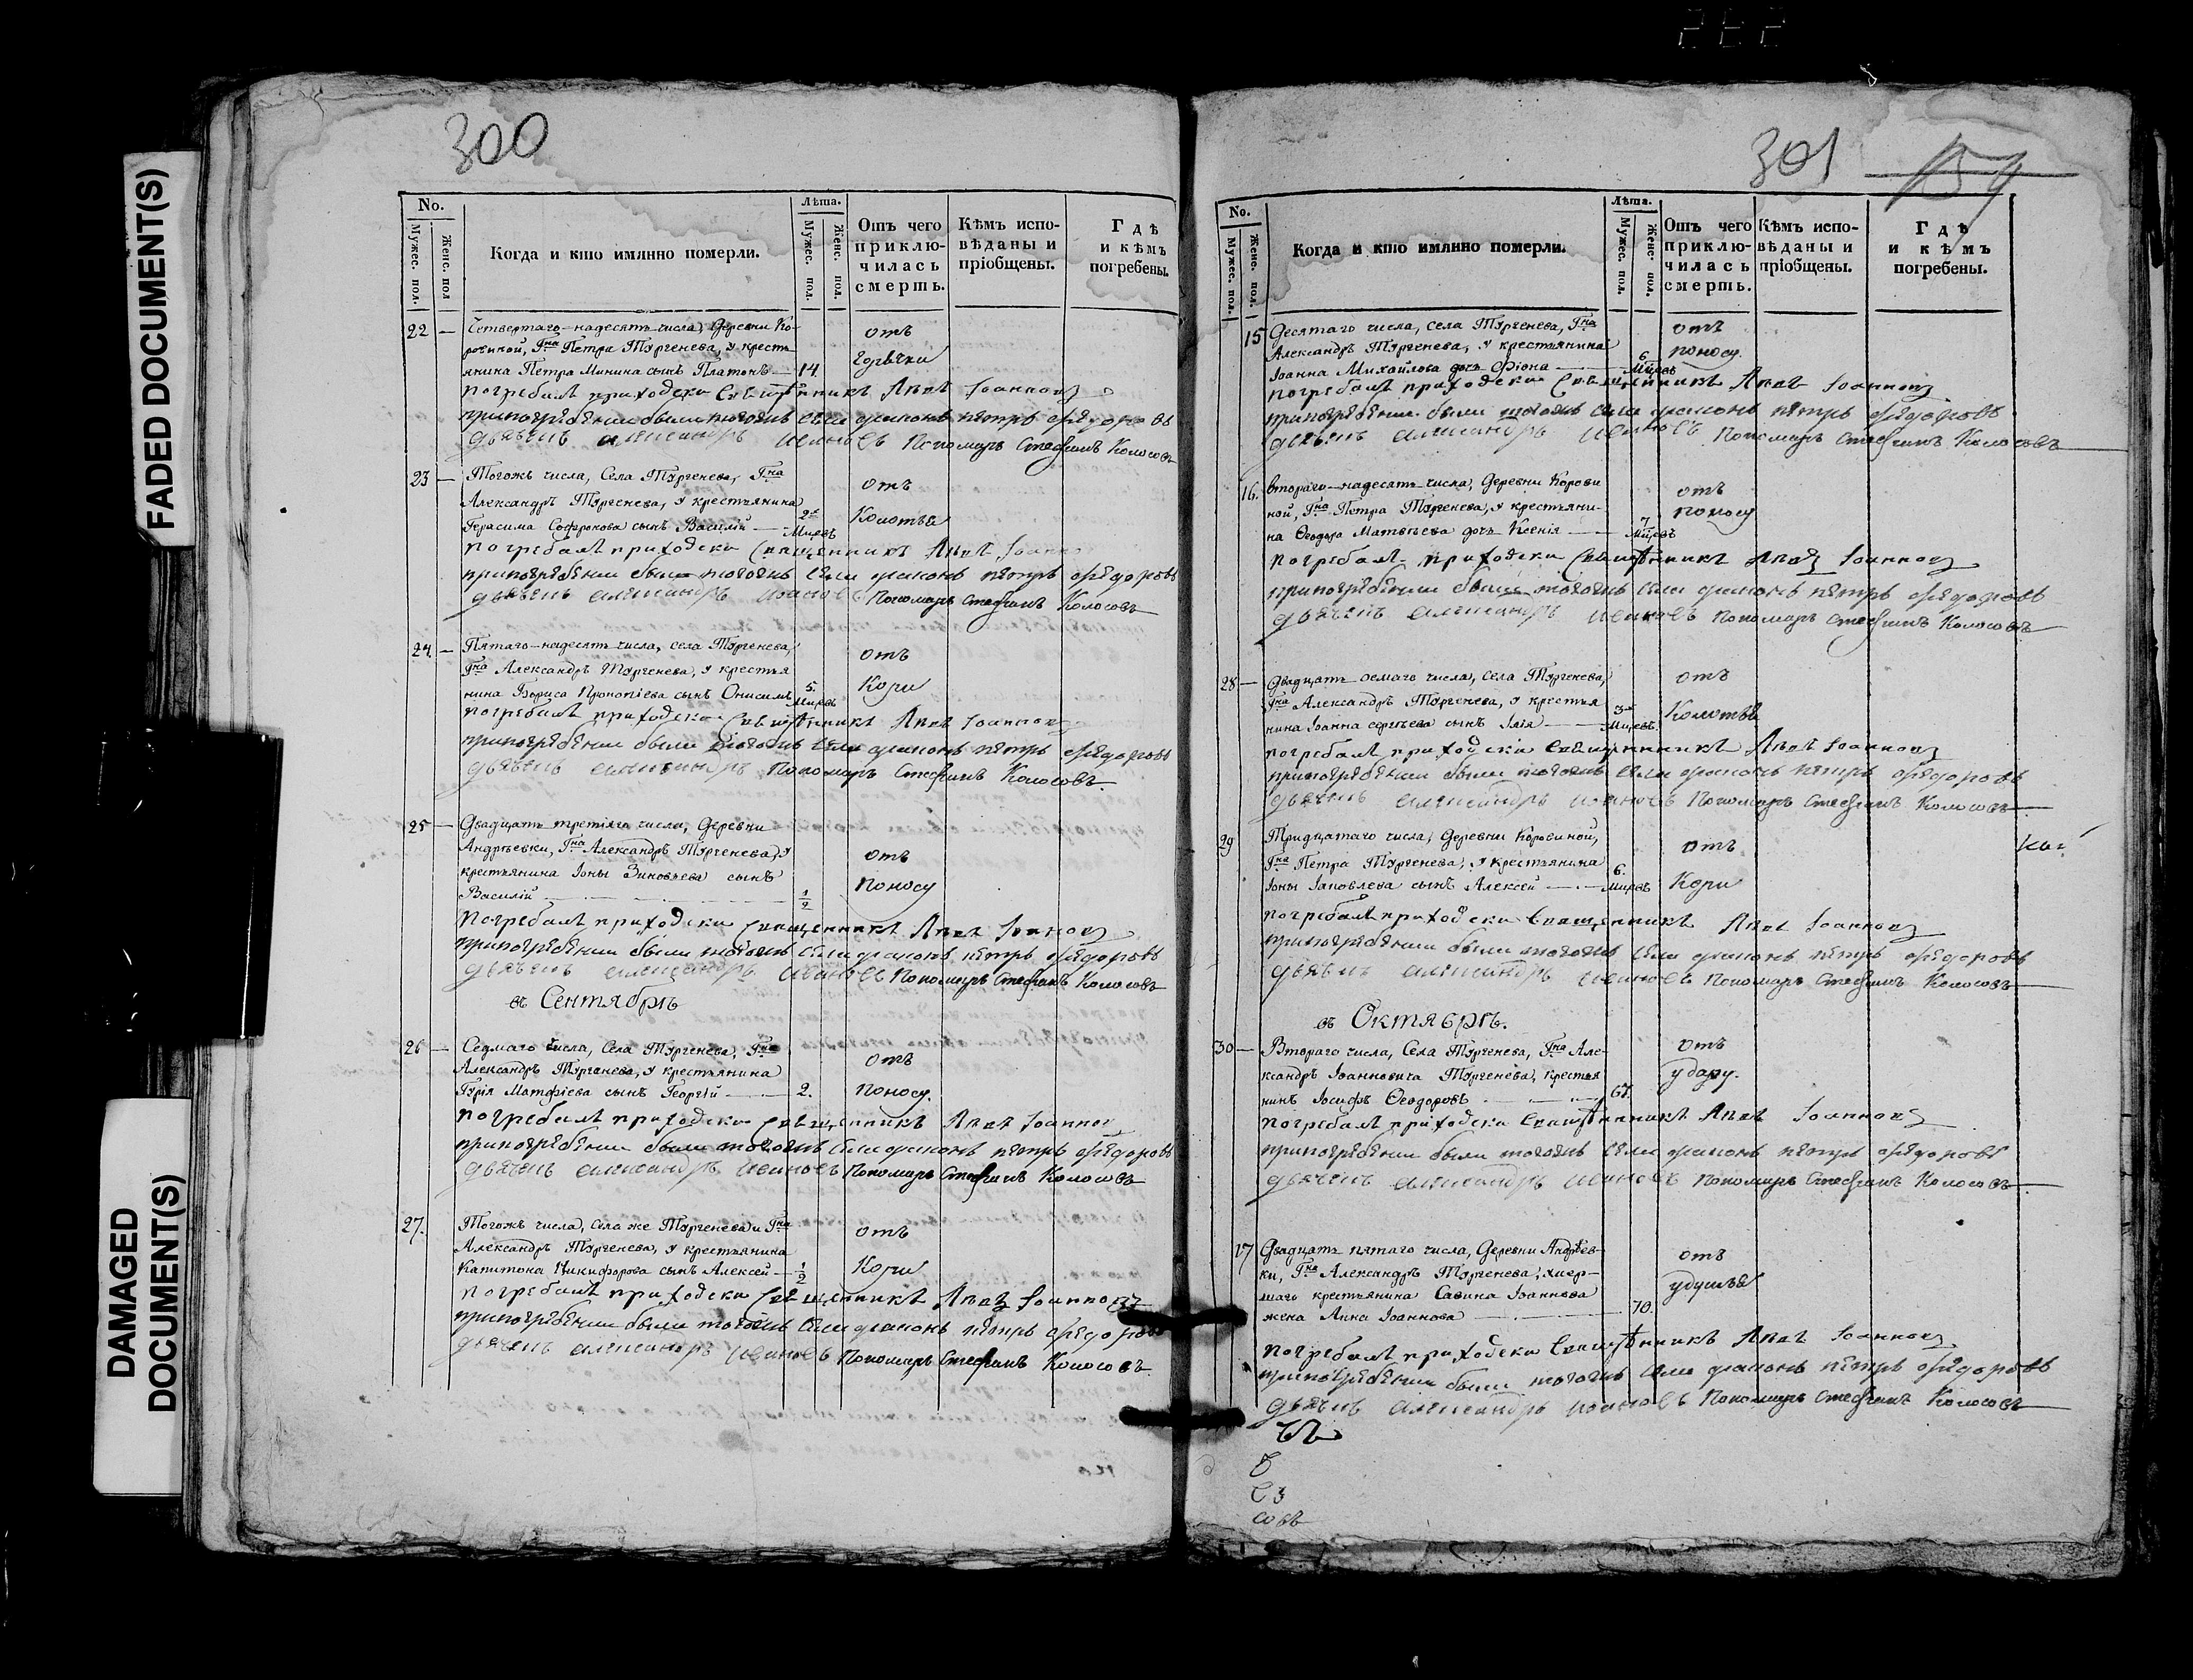 300
No.
Мужес. пол.
Женс. пол
Когда и кто имянно померли.
Лѣта.
Мужес. пол.
Женс. пол.
Отъ чего приклю-
чилась
смерть.
Кѣмъ испо-
вѣданы и
пріобщены.
Гдѣ
и кѣмъ
погребены.
22 — Четвертаго-надесять числа, Деревни Ко-
ровиной, Гна Петра Тургенева, у кресть-
янина Петра Минина сынъ Платонъ — 14
отъ
Горячки
погребалъ приходски Священникъ Левъ Іоанновъ
припогребении были тогожъ села диаконъ петръ федоровъ
дьячекъ александръ ивановъ Пономарь Стефанъ Колосовъ
23 — Тогожъ числа, Села Тургенева, Гна
Александръ Тургенева, у крестьянина
Герасима Софронова сынъ Василій — 2х Мцовъ
отъ
Колотья
погребалъ приходски Священникъ Левъ Іоанновъ
припогребении были тогожъ села диаконъ петръ федоровъ
дьячекъ александръ ивановъ Пономарь Стефанъ Колосовъ
24. — Пятаго-надесять числа, села Тургенева,
Гна Александръ Тургенева, у крестья
нина Бориса Прокопіева сынъ Онисимъ 5. Мцовъ
отъ
Кори
погребалъ приходски Священникъ Левъ Іоанновъ
припогребении были тогожъ села диаконъ петръ федоровъ
дьячекъ александръ Пономарь Стефанъ Колосовъ.
25 — Двадцать третіяго числа, Деревни
Андрѣевки, Гна Александръ Тургенева, у
крестьянина Іоны Зиновьева сынъ
Василій — 1/2
отъ
Поносу
погребалъ приходски Священникъ Левъ Іоанновъ
припогребении были тогожъ села диаконъ петръ федоровъ
дьячекъ александръ ивановъ Пономарь Стефанъ Колосовъ
въ Сентябрѣ
26 — Седмаго числа, Села Тургенева, Гна
Александръ Тургенева, у крестьянина
Гурія Матфіева сынъ Георгій — 2.
отъ
Поносу.
погребалъ приходски Священникъ Левъ Іоанновъ
припогребении были тогожъ села диаконъ петръ федоровъ
дьячекъ александръ ивановъ Пономарь Стефанъ Колосовъ
27. Тогожъ числа, села же Тургенева и Гна
Александръ Тургенева, у крестьянина
Капитона Никифорова сынъ Алексей — 1/2
отъ
Кори
погребалъ приходски Священникъ Левъ Іоанновъ
припогребении были тогожъ села диаконъ петръ федоровъ
дьячекъ александръ ивановъ Пономарь Стефанъ Колосовъ.
301
No.
Мужес. пол.
Женс. пол.
Когда и кто имянно померли.
Лѣта.
Мужес. пол.
Женс. пол.
Отъ чего
приклю-
чилась
смерть.
Кѣмъ испо-
вѣданы и
пріобщены.
Гдѣ
и кѣмъ
погребены.
15 Десятаго числа, села Тургенева, Гна
Александръ Тургенева, у крестьянина
Іоанна Михайлова дочь Фіона — 6 Мцовъ
отъ
поносу.
погребалъ приходски Священникъ Левъ Іоанновъ
припогребении были тогожъ села диаконъ петръ федоровъ
дьячекъ александръ ивановъ Пономарь Стефанъ Колосовъ
16. Втораго-надесять числа, Деревни Корови
ной, Гна Петра Тургенева, у крестьяни-
на Ѳеодора Матвѣева дочь Ксенія — 7 Мцовъ
отъ
поносу
погребалъ приходски Священникъ Левъ Іоанновъ
припогребении были тогожъ села диаконъ петръ федоровъ
дьячекъ александръ ивановъ Пономарь Стефанъ Колосовъ
28 — Двадцать осмаго числа, села Тургенева,
Гна Александръ Тургенева, у крестья
нина Іоанна Сергѣева сынъ Илія — 3х Мцовъ
отъ
Колотья
погребалъ приходски Священникъ Левъ Іоанновъ
припогребении были тогожъ села диаконъ петръ федоровъ
дьячекъ александръ ивановъ Пономарь Стефанъ Колосовъ
29 Тридцатаго числа, Деревни Коровиной,
Гна Петра Тургенева, у крестьянина
Іоны Іаковлева сынъ Алексей — 6. Мцовъ
отъ
Кори
погребалъ приходски Священникъ Левъ Іоанновъ
припогребении были тогожъ села диаконъ петръ федоровъ
дьячекъ александръ ивановъ Пономарь Стефанъ Колосовъ
въ Октябрѣ.
30 — Втораго числа, Села Тургенева, Гна Але-
ксандръ Іоанновича Тургенева, крестья
нинъ Іосифъ Ѳеодоровъ — 67.
отъ
удару.
погребалъ приходски Священникъ Левъ Іоанновъ
припогребении были тогожъ села диаконъ петръ федоровъ
дьячекъ александръ ивановъ Пономарь Стефанъ Колосовъ
17 Двадцать пятаго числа, Деревни Андрѣев-
ки, Гна Александръ Тургенева, умер-
шаго крестьянина Савина Іоаннова
жена Анна Іоаннова — 70.
отъ
удушья
погребалъ приходски Священникъ Левъ Іоанновъ
припогребении были тогожъ села диаконъ петръ федоровъ
дьячекъ александръ ивановъ Пономарь Стефанъ Колосовъ
FADED DOCUMENT(S)
DAMAGED
DOCUMENT(S)